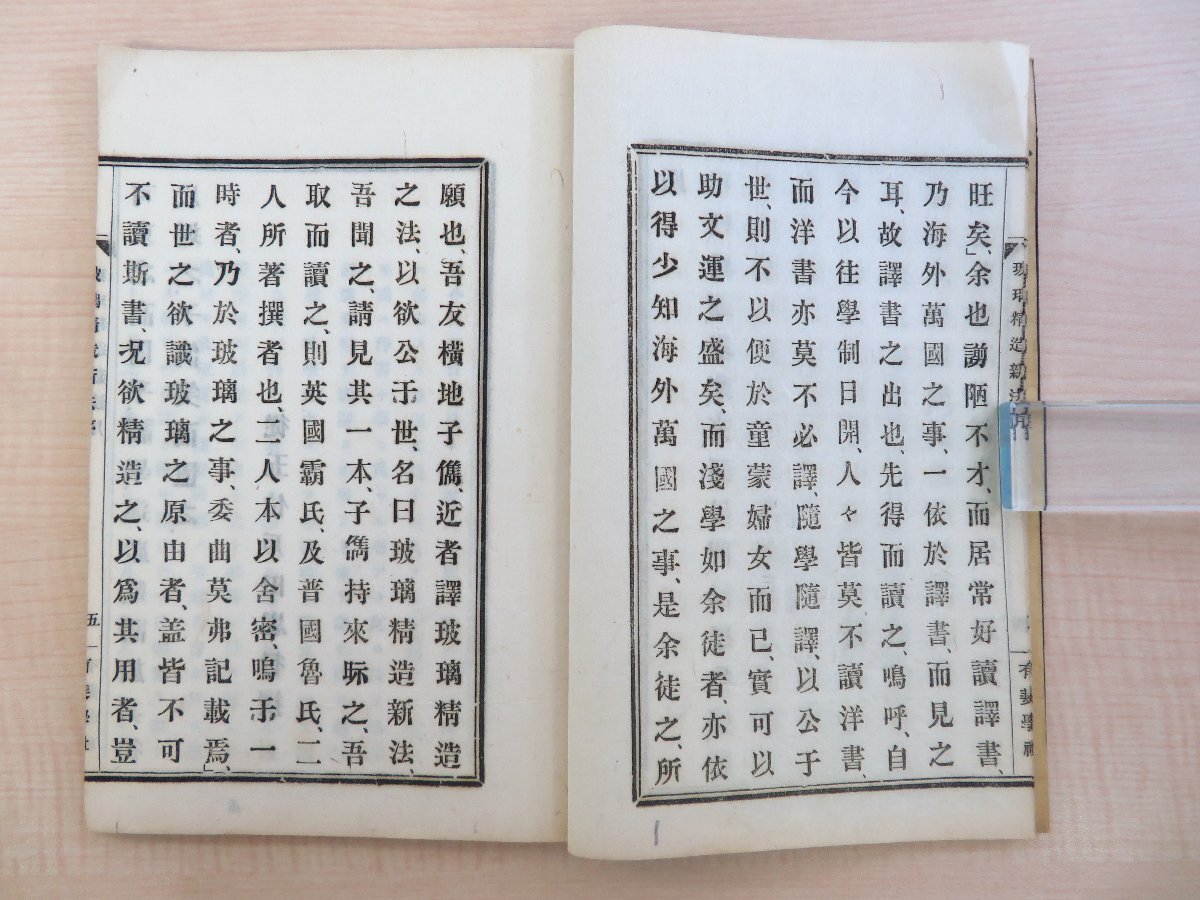 旺矣、余也謭陋不才、而居常好讀譯書、
乃海外萬國之事、一依於譯書、而見之
耳、故譯書之出也、先得而讀之、嗚呼、自
今以往學制日開、人々皆莫不讀洋書、
而洋書亦莫不必譯、隨學隨譯、以公于
世、則不以便於童蒙婦女而已、實可以
助文運之盛矣、而淺學如余徒者、亦依
以得少知海外萬國之事、是余徒之、所
願也、吾友橫地子儁、近者譯玻璃精造
之法、以欲公于世、名曰玻璃精造新法、
吾聞之、請見其一本、子儁持來眎之、吾
取而讀之、則英國霸氏、及普國魯氏、二
人所著撰者也、二人本以舍密、鳴于一
時者、乃於玻璃之事、委曲莫弗記載焉、
而世之欲識玻璃之原由者、盖皆不可
不讀斯書、况欲精造之、以爲其用者、豈
玻璃精造新法
五